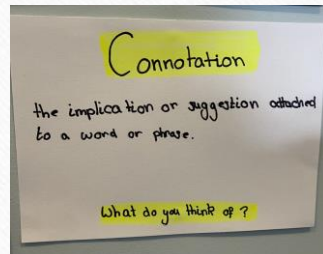 Connotation
the implication or suggestion attached
to a word or phrase.
What do you think of ?